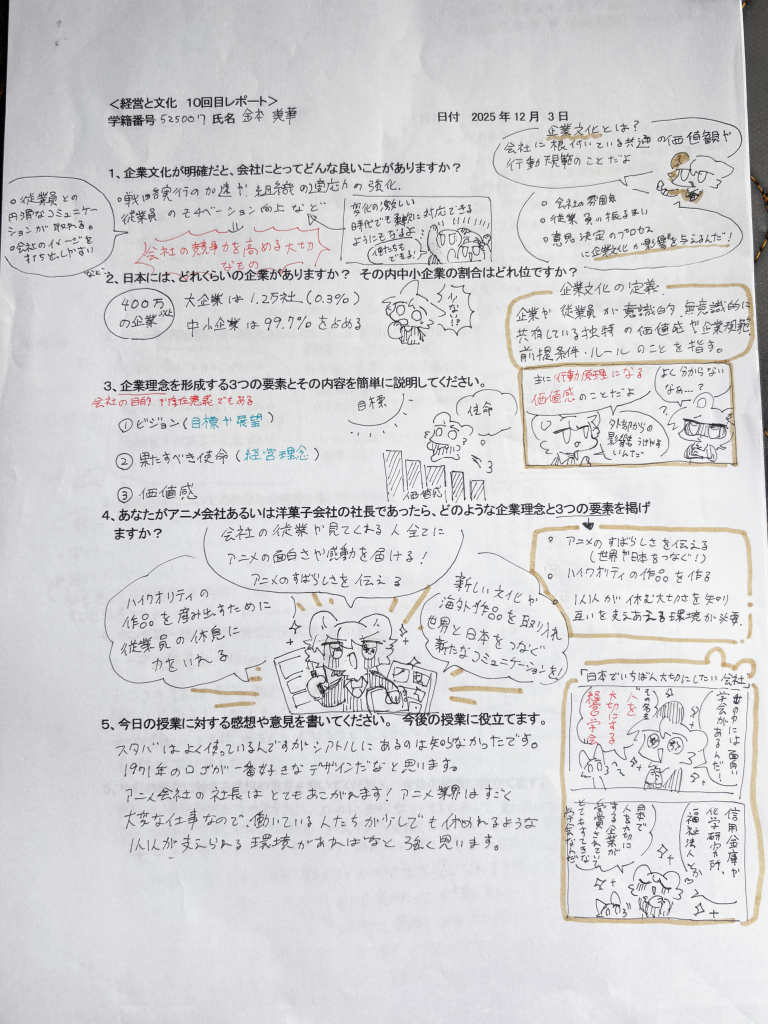 <経営と文化　10回目レポート>
学籍番号 525007 氏名 金本 美華
日付　2025 年 12 月　3 日
企業文化とは？
会社に根付いている共通の価値観や
行動規範のことだよ
1、企業文化が明確だと、会社にとってどんな良いことがありますか？
・戦略実行の加速や組織の適応力の強化.
従業員のモチベーション向上など
○従業員との
円滑なコミュニケー
ションが取れる。
○会社のイメージを
打ち出しやすい
など…
会社の競争力を高める大切
なもの
変化の激しい
時代でも柔軟に対応できる
ようにもなるよ！
○会社の雰囲気
○従業員の振るまい
○意思決定のプロセス
に企業文化が影響を与えるんだ！
2、日本には、どれくらいの企業がありますか？ その内中小企業の割合はどれ位ですか？
400万
の企業
以上
大企業は1.2万社(0.3%)
中小企業は99.7%を占める
少ない!?
企業文化の定義
企業や従業員が意識的、無意識的に
共有している独特の価値感や企業規範
前提条件・ルールのことを指す。
主に行動原理になる
価値感のことだよ
よし分からない
なぁ…？
外部からの
影響も うけやす
いんだ
3、企業理念を形成する3つの要素とその内容を簡単に説明してください。
会社の目的や存在意義でもある
①ビジョン(目標や展望)
②果たすべき使命(経営理念)
③価値感
目標
使命
価値感
4、あなたがアニメ会社あるいは洋菓子会社の社長であったら、どのような企業理念と3つの要素を掲げ
ますか？
会社の従業が見てくれる人全てに
アニメの面白さや感動を届ける！
アニメのすばらしさを伝える
ハイクオリティの
作品を産み出すために
従業員の休息に
力をいれる
新しい文化や
海外作品を取り入れ
世界と日本をつなぐ
新たなコミュニケーションを！
○アニメのすばらしさを伝える
(世界や日本をつなぐ！)
○ハイクオリティの作品を作る
○1人1人が休む大切さを知り
互いを支えあえる環境が必要.
「日本でいちばん大切にしたい会社」
世の中には面白い
学会があるんだ！
その名も
人を
大切にする
経営学会
信用金庫や
化学研究所、
福祉法人とか♡
日本で
人を大切に
する企業が
受賞されていて
とてもすてきな
学会なんだ
5、今日の授業に対する感想や意見を書いてください。 今後の授業に役立てます。
スタバはよく使っているんですがシアトルにあるのは知らなかったです。
1971年のロゴが一番好きなデザインだなと思います。
アニメ会社の社長はとてもあこがれます！アニメ業界はすごく
大変な仕事なので、働いている人たちが少しでも休めれるような
1人1人が支えられる環境があればなと強く思います。